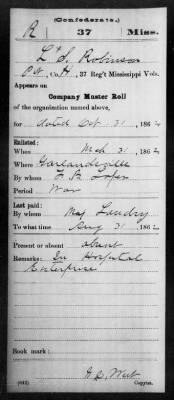 (Confederate.)
R 37 Miss.
Lt S. Robinson
Co. H, 37 Reg't Mississippi Vols.
Appears on
Company Muster Roll
of the organization named above,
for dated Oct 31, 186 2
Enlisted:
When Mch 31, 186 2
Where Garlandsville
By whom
Period War
Last paid:
By whom Maj Landry
To what time Aug 31, 186 2
Present or absent absent
Remarks: In Hospital
Enterprise
Book mark:
(642) Copyist.